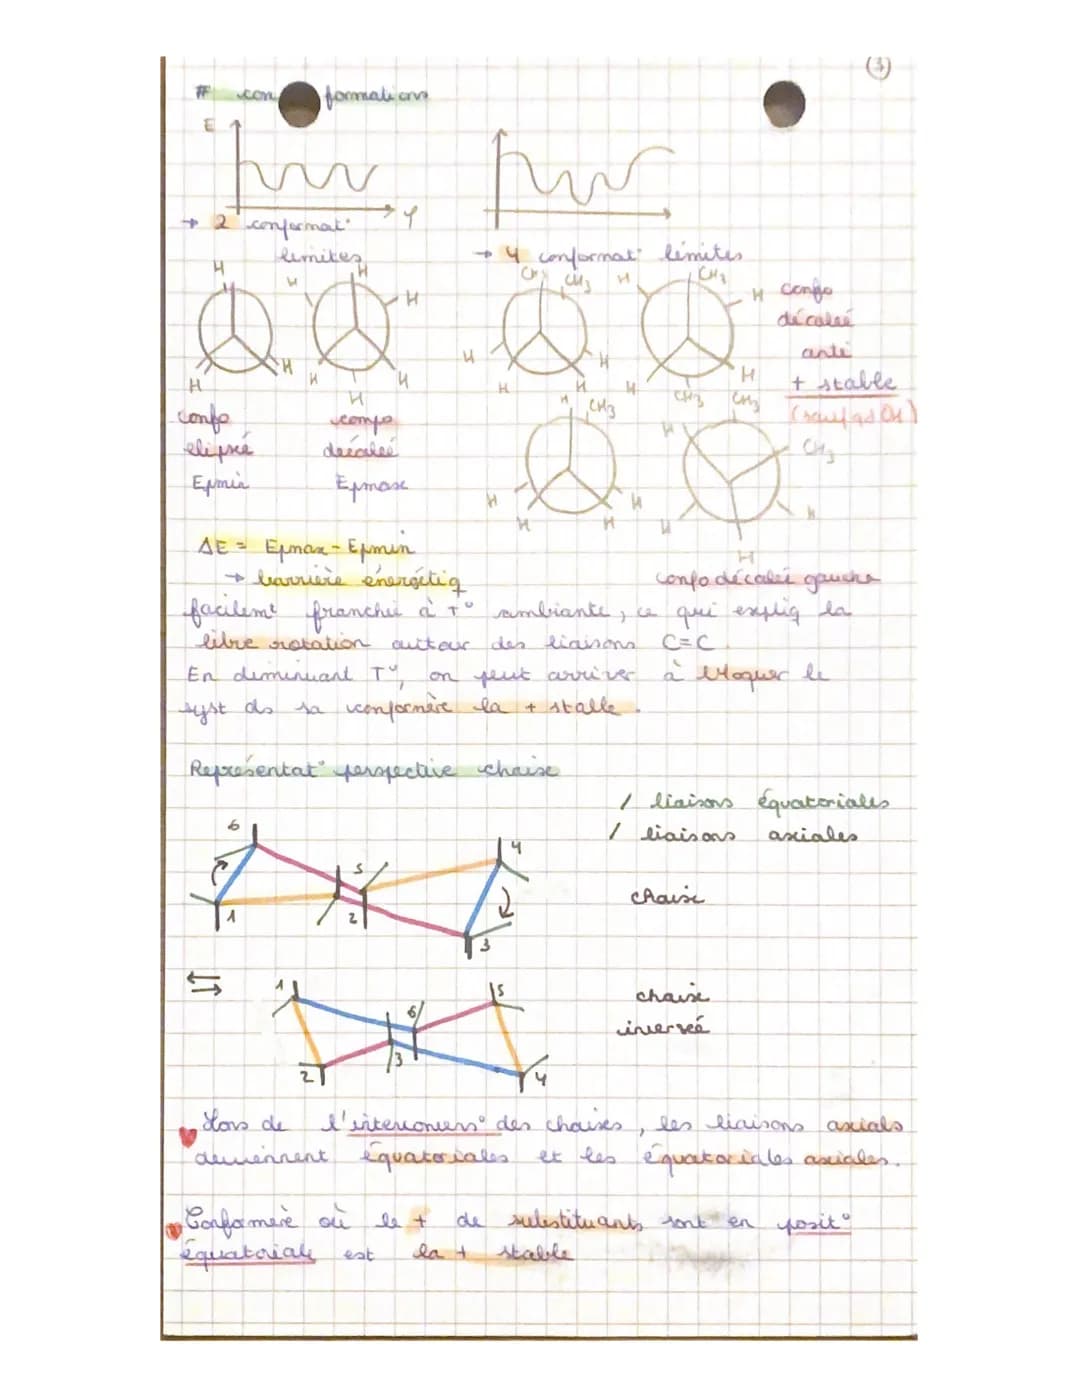 3
# conformations
E
φ
→ 2 conformat°
limites
→ 4 conformat° limites
H
H
H
H
H
H
H
H
H
H
H
CH3
CH3
H
H
H
H
H
CH3
H
H
H
CH3
confo
décalée
anti
+ stable
(sauf qd OH)
H
CH3
H
H
H
H
CH3
CH3
H
H
H
H
confo
eclipsé
Epmin
confo
décalée
Epmax
confo décalée gauche
ΔE = Epmax - Epmin
→ barrière énergétiq
facilemt franchie à T° ambiante, ce qui expliq la
libre rotation autour des liaisons C=C
En diminuant T°, on peut arriver à bloquer le
syst ds sa conformère la + stable.
Représentat° perspective chaise
/ liaisons équatoriales
/ liaisons axiales
6
1
5
2
4
3
chaise
⇆
1
2
6
3
5
4
chaise
inversée
Lors de l'interconvers° des chaises, les liaisons axiales
deviennent équatoriales et les équatoriales axiales.
Conformère où le + de substituants sont en posit°
équatoriale est la + stable